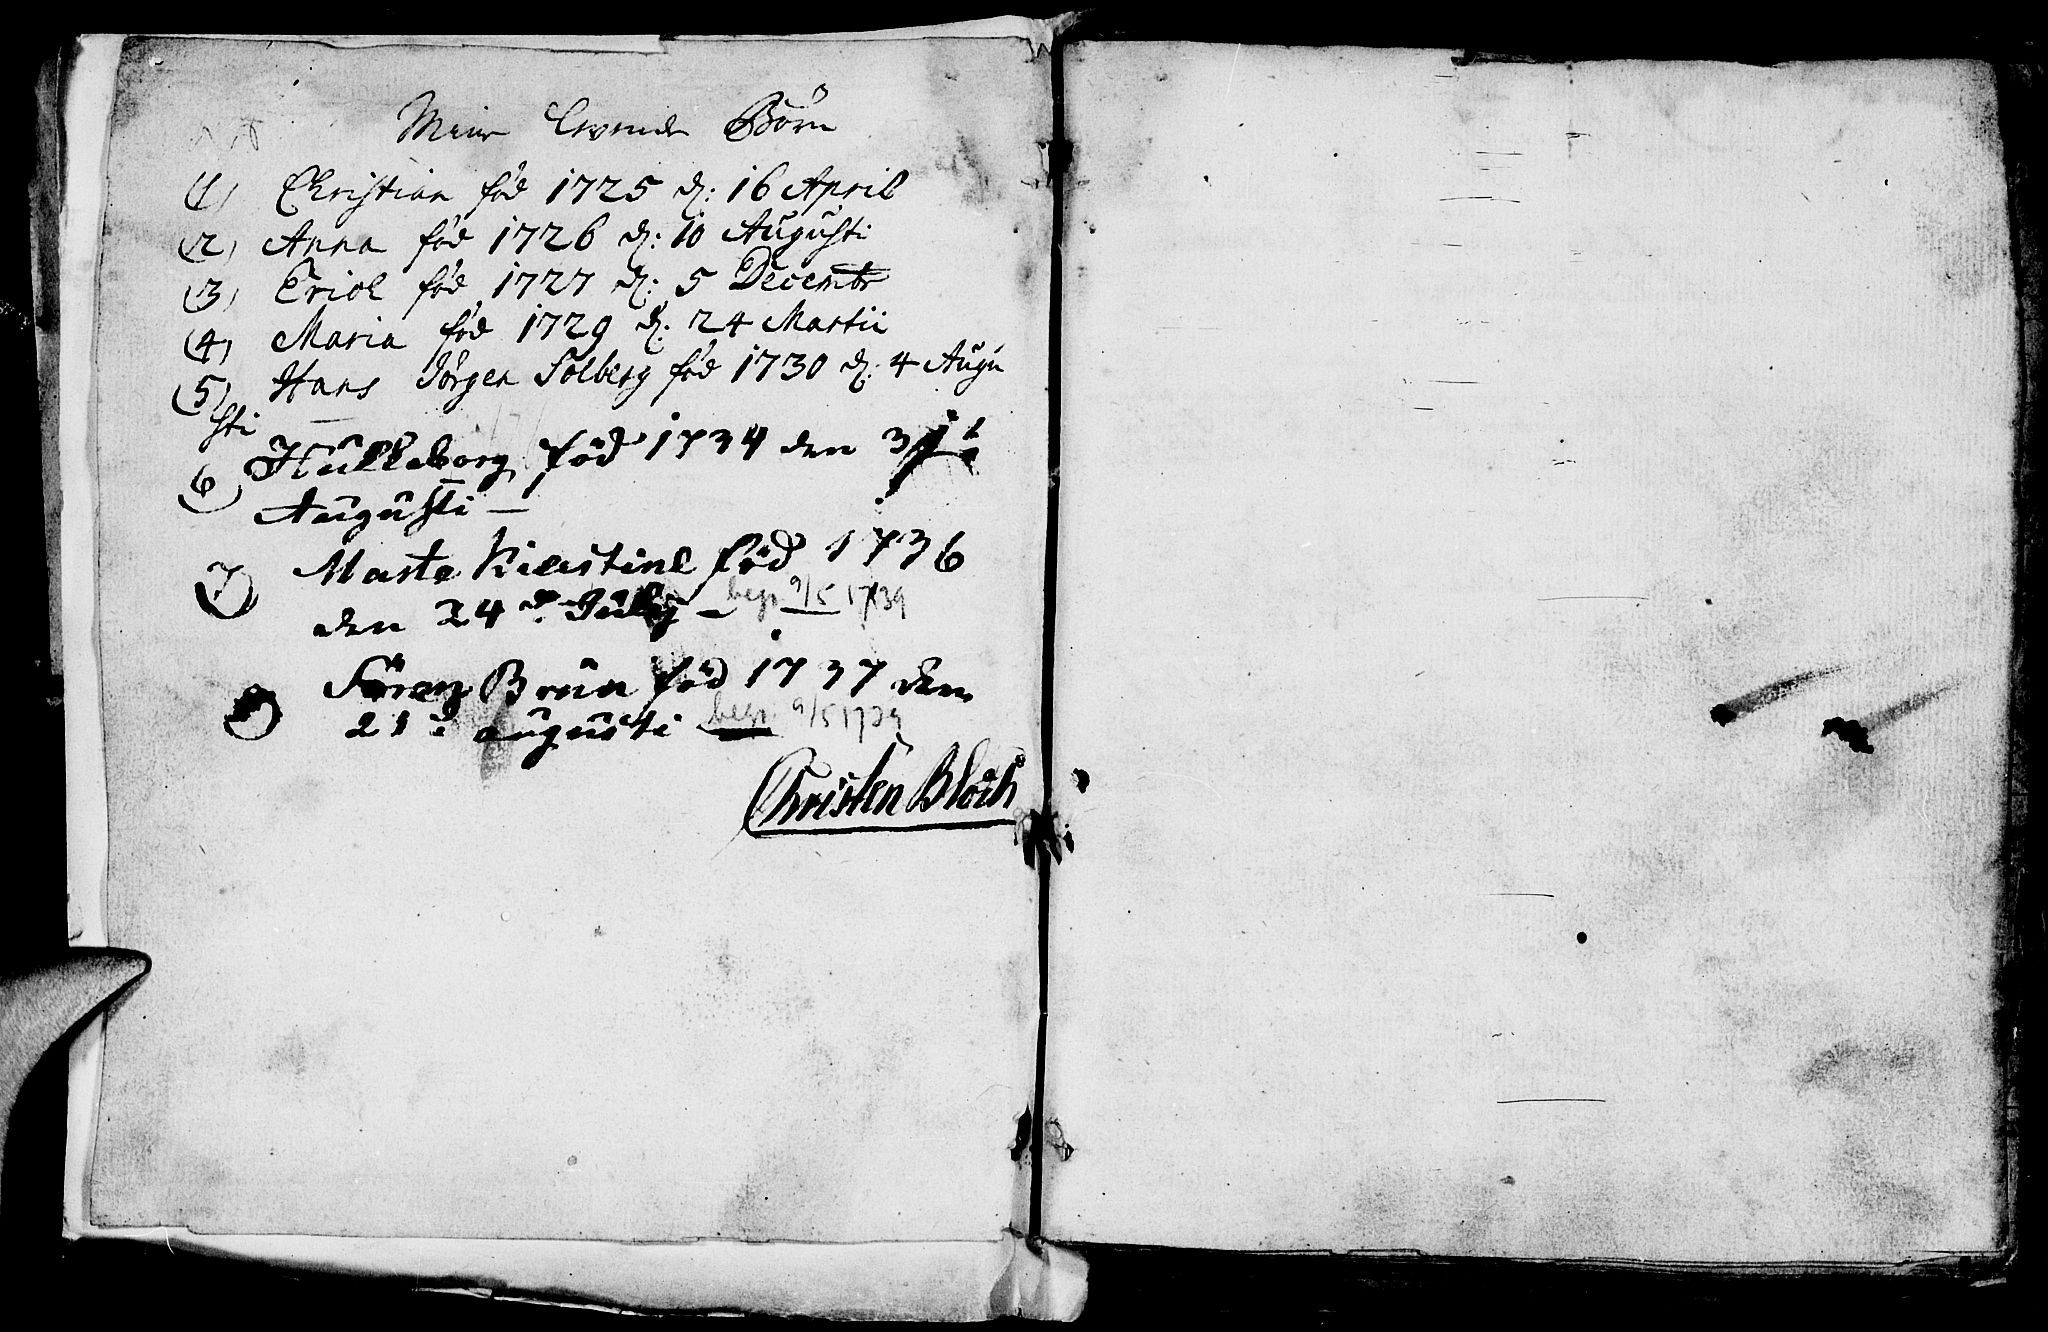 Mine Levende Børn
(1) Christian fød 1725 d: 16 April
(2) Anna fød 1726 d: 10 Augusti
(3) Erich fød 1727 d: 5 Decembr
(4) Maria fød 1729 d: 24 Martii
(5) Hans Jørgen Solberg fød 1730 d: 4 Augu
sti
6) Hulleborg föd 1734 den
Augusti —
7) Marte Kierstine föd 1736
den 24 d. Julij — begr. 9/5 1739
Sören Brun föd 1737 den
21 d. augusti — begr. 9/5 1739
Christen Bloch